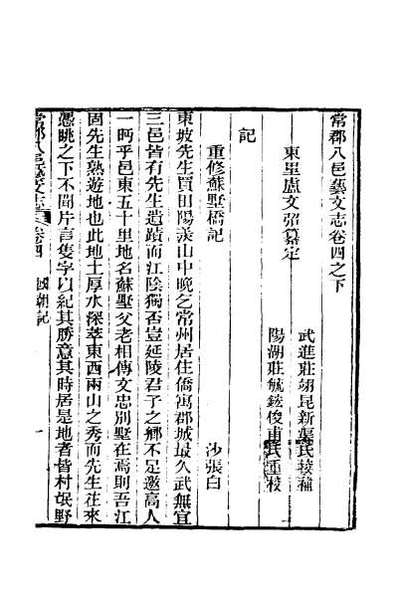 常郡八邑藝文志卷四之下
東里盧文弨纂定
武進莊翊昆新
陽湖莊毓鋐俊甫氏重校
記
重修蘇墅橋記
沙張白
東坡先生買田陽羨山中晚乞常州居住僑寓郡城最久武無宜
三邑皆有先生遺蹟而江陰獨否豈延陵君子之鄉不足邀高人
一眄乎邑東五十里地名蘇墅父老相傳文忠別墅在焉則吾江
固先生熟遊地也此地土厚水深萃東西兩山之秀而先生往來
憑眺之下不聞片言隻字以紀其勝意其時居是地者皆村氓野
常郡八邑藝文志 卷四
國朝記
一